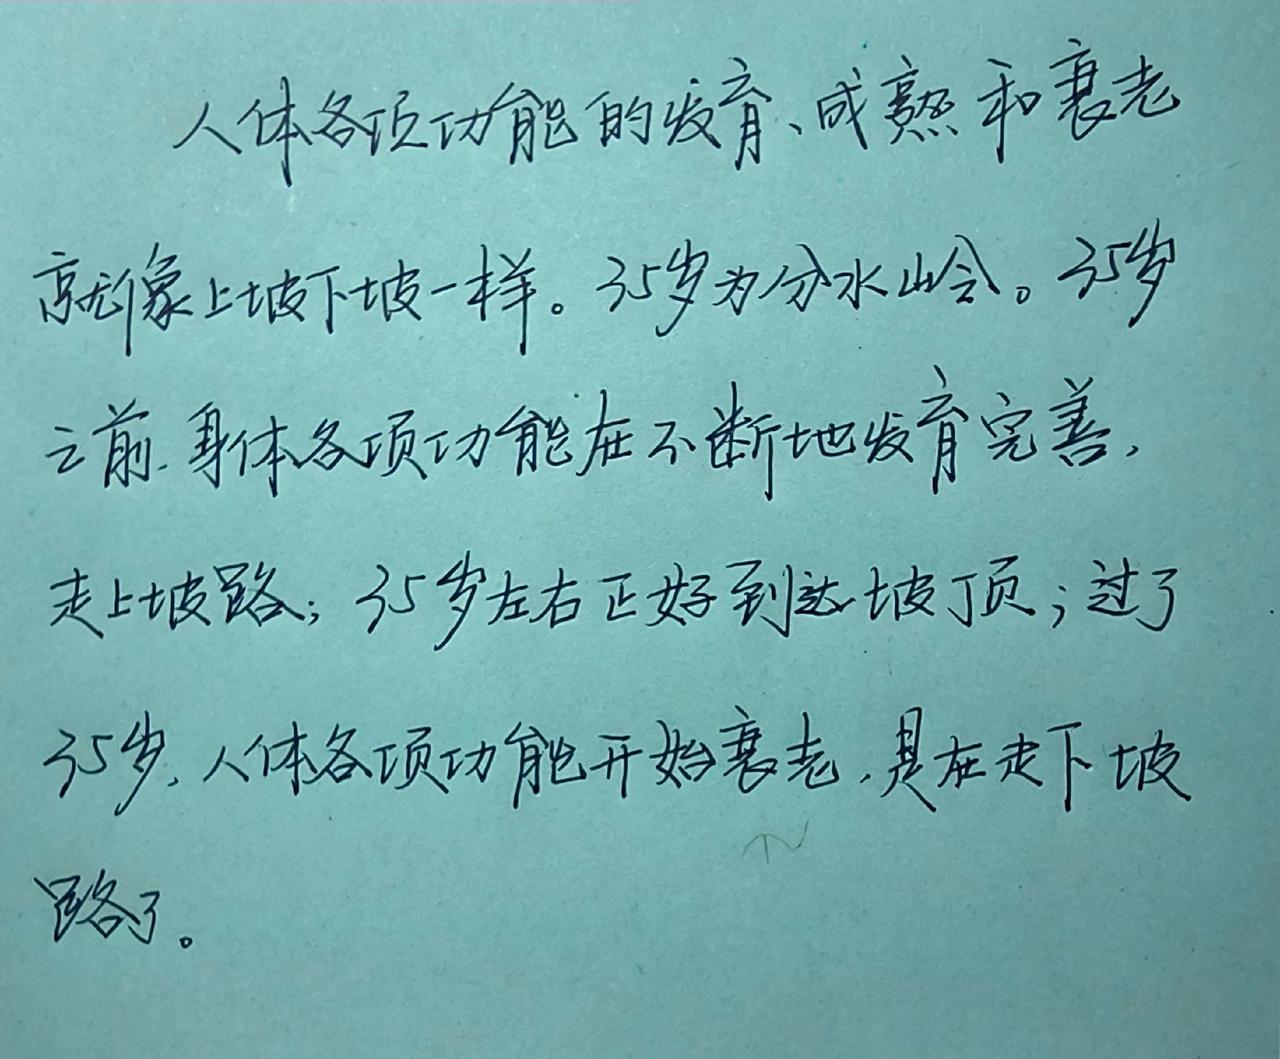 人体各项功能的发育、成熟和衰老
就像上坡下坡一样。35岁为分水岭。35岁
之前，身体各项功能在不断地发育完善，
走上坡路；35岁左右正好到达坡顶；过了
35岁，人体各项功能开始衰老，是在走下坡
路了。